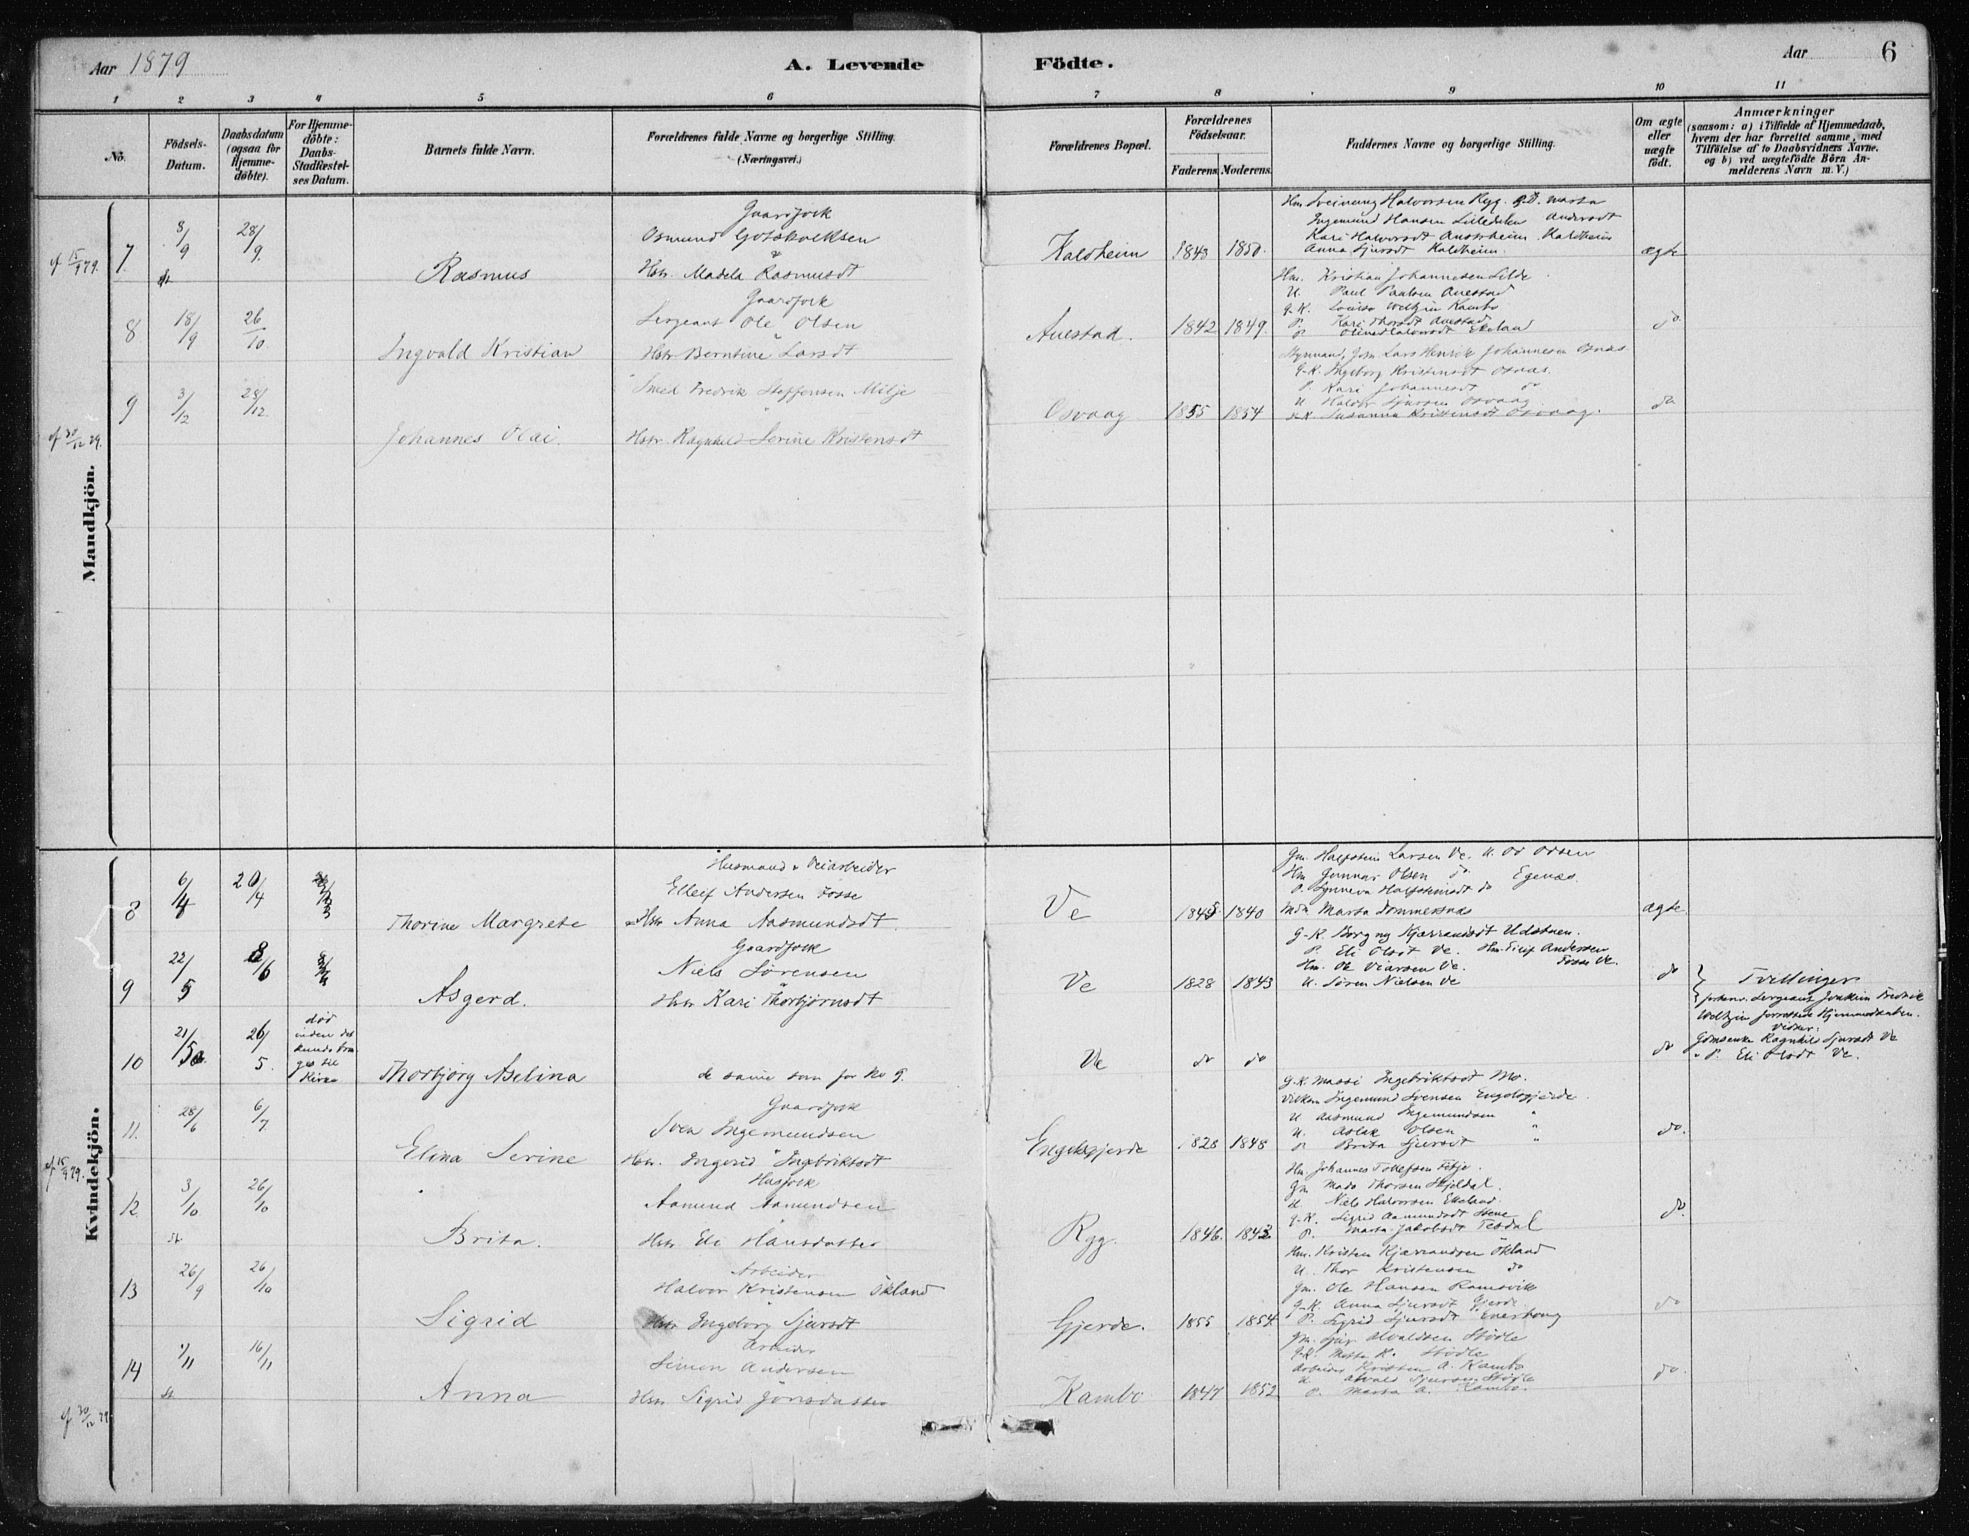 Aar 1879
A. Levende Födte.
Aar
6
1 2 3 4 5 6 7 8 9 10 11
No.
Födsels-Datum.
Daabsdatum (ogsaa for Hjemme-døbte).
For Hjemme-døbte: Daabs-Stadfæstel-ses Datum.
Barnets fulde Navn.
Forældrenes fulde Navne og borgerlige Stilling. (Næringsvei.)
Forældrenes Bopæl.
Forældrenes Födselsaar.
Faderens Moderens
Faddernes Navne og borgerlige Stilling.
Om ægte eller uægte födt.
Anmærkninger
(saasom: a) i Tilfælde af Hjemmedaab, hvem der har forrettet samme, med Tilföielse af to Daabsvidners Navne, og b) ved uægtefödte Börn Anmelderens Navn m. V.)
Mandkjön.
7 8/9 28/9 Rasmus
Gaardfolk
Osmund Gotskalksen
Hstr. Madela Rasmusdt
Kaldheim 1843 1850. ægte
Hm Sveinung Halvorsen Ryg.
Ingemund Hansen
Anna Sjursdt Kaldheim.
8 18/9 26/10 Ingvald Kristian
Gaardfolk
Sergeant Ole Olsen
Hstr Berntine Larsdt
Auestad. 1842 1849. do
Hm. Kristian Johannesen Lilde
U. Paul Paulsen Auestad
G.K. Lovise Weltzin Kambo
P. Kari Thorsdt Auestad
P. Oline Halvorsdt Ekeland
9 3/12 28/12 Johannes Olai.
Smed Fredrik Steffensen Milje
Hstr. Ragnhild Serine Kristensdt
Osvaag 1855 1854 do
Lars Henrik Johannesen Osnæs
G.K. Ingeborg Kristensdt Osnæs.
P. Kari Johannesdt do
U. Halvor Sjursen Osvaag.
G.K. Susanna Kristensdt Osvaag.
Kvindekjön.
8 6/4 20/4 Thorine Margrete
Husmand & Veiarbeider
Elleif Andersen Fosse
Hstr Anna Aasmundsdt.
Ve 1845 1840 ægte.
Gm. Halfstein Larsen Ve.
Hm Gunnar Olsen do Egenæs.
P. Synneva Halfsteinsdt do
Marta Tommersnæs
9 22/5 8/6 Asgerd.
Gaardfolk
Niels Sørensen
Hstr Kari Thorbjørnsdt
Ve 1828 1843 do
G.K. Borgny Kjærrandsdt Udstuen.
P. Eli Olsdt Ve. Hm. Elleif Andersen Fosse Ve.
Hm. Ole Viarsen Ve.
U. Søren Nielsen Ve
Tvillinger
10 21/5 26/5. død inden det kunde bringes til Kirke
Thorbjørg Aselina
de samme som for No 9.
Ve do do do
Sergeant Joakim Fredrik Weltzin forrettede Hjemmedaaben.
Vidner:
Ragnhild Sjursdt Ve
P. Eli Olsdt Ve.
11. 28/6 6/7 Elina Serine
Gaardfolk
Sven Ingemundsen
Hstr. Ingerid Ingebriktsdt
Engelsgjerde 1828 1848 do.
G.K. Massi Ingebriktsdt Mo.
Ingemund Svensen Engelsgjerde.
U Aasmund Ingemundsen "
U. Aslak Olsen "
P Brita Sjursdt "
12 3/10 26/10 Brita.
Husfolk
Aamund Aamundsen
Hstr Eli Hansdatter
Ryg. 1846. 1843 do.
Hm. Johannes Tollefsen Tetje.
Gm Mads Thorsen Skjoldal.
U Niels Halvorsen Ekeland.
G.K. Sigrid Aamundsdt Stene
P. Marta Jakobsdt Tesdal
13 26/9 26/10 Sigrid
Arbeider
Halvor Kristensen Økland
Hstr Ingeborg Sjursdt
Gjerde. 1855 1854 do
Hm. Kristen Kjærrandsen Økland
U. Thor Kristensen do
Gm. Ole Hansen Ramsvik
G.K. Anna Sjursdt Gjerde.
P. Sigrid Sjursdt
14 1/11 16/11 Anna
Arbeider
Simon Andersen
Hstr Sigrid Jonsdatter
Kambo 1847 1852 do.
Gm. Sjur Asvaldsen Stødle
G.K. Mette K. Stødle
Arbeider Kristen A. Kambo
U Asvald Sjursen Stødle
P. Marta A. Kambo.